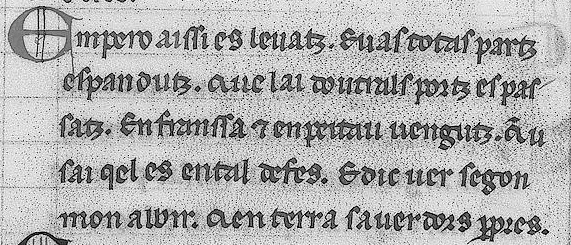 Empero aissi es leuatz. Euas totas partz
espandutz. Que lai doutrals portz es pas
satz. En franssa ⁊ en peitau uengutz. Q̃u
sai qel es en tal defes. E dic uer segon
mon albir. Qen terra sa uer dors ꝓpres.